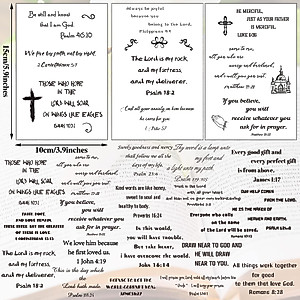 Be still and know
that I am God.
Psalm 46:10
We live by faith, not by sight.
2 Corinthians 5:7
THOSE WHO HOPE
IN THE
LORD WILL SOAR
ON WINGS LIKE EAGLES
ISAIAH 40:31
15cm/5.9inches
10cm/3.9inches
Always be joyful
because
you belong to the Lord.
Philippians 4:4
The Lord is my rock,
and my fortress,
and my deliverer.
Psalm 18:2
BE MERCIFUL,
JUST AS YOUR FATHER
IS MERCIFUL.
If you believe,
you will
receive whatever you
ask for in prayer.
Matthew 21:22
THOSE WHO HOPE
IN THE
LORD WILL SOAR
ON WINGS LIKE EAGLES
ISAIAH 40:31
Surely goodness and mercy
shall follow me all the
days of my life.
Psalm 23:6
Thy word is a lamp unto
my feet and
a light unto my path.
Every good gift and
every perfect gift
is from above.
James 1:17
Kind words are like honey,
sweet to soul and
healthy to body.
Proverbs 16:24
If you believe,
you will
receive whatever you
ask for in prayer.
Matthew 21:22
OUR HELP COMES
FROM THE LORD.
We love him because
he first loved us.
1 John 4:19
In this world,
you will have trouble,
But take heart,
I have overcome the world.
John 16:33
Everyone who calls
on the name
of the LORD will be saved.
The Lord is my
rock,
and my fortress,
and my deliverer.
Psalm 18:2
This is the day which
the
Lord hath made.
Psalm 118:24
DRAW NEAR TO GOD AND
HE WILL DRAW
NEAR TO YOU.
All things work together
for good
to them that love God.
Romans 8:28